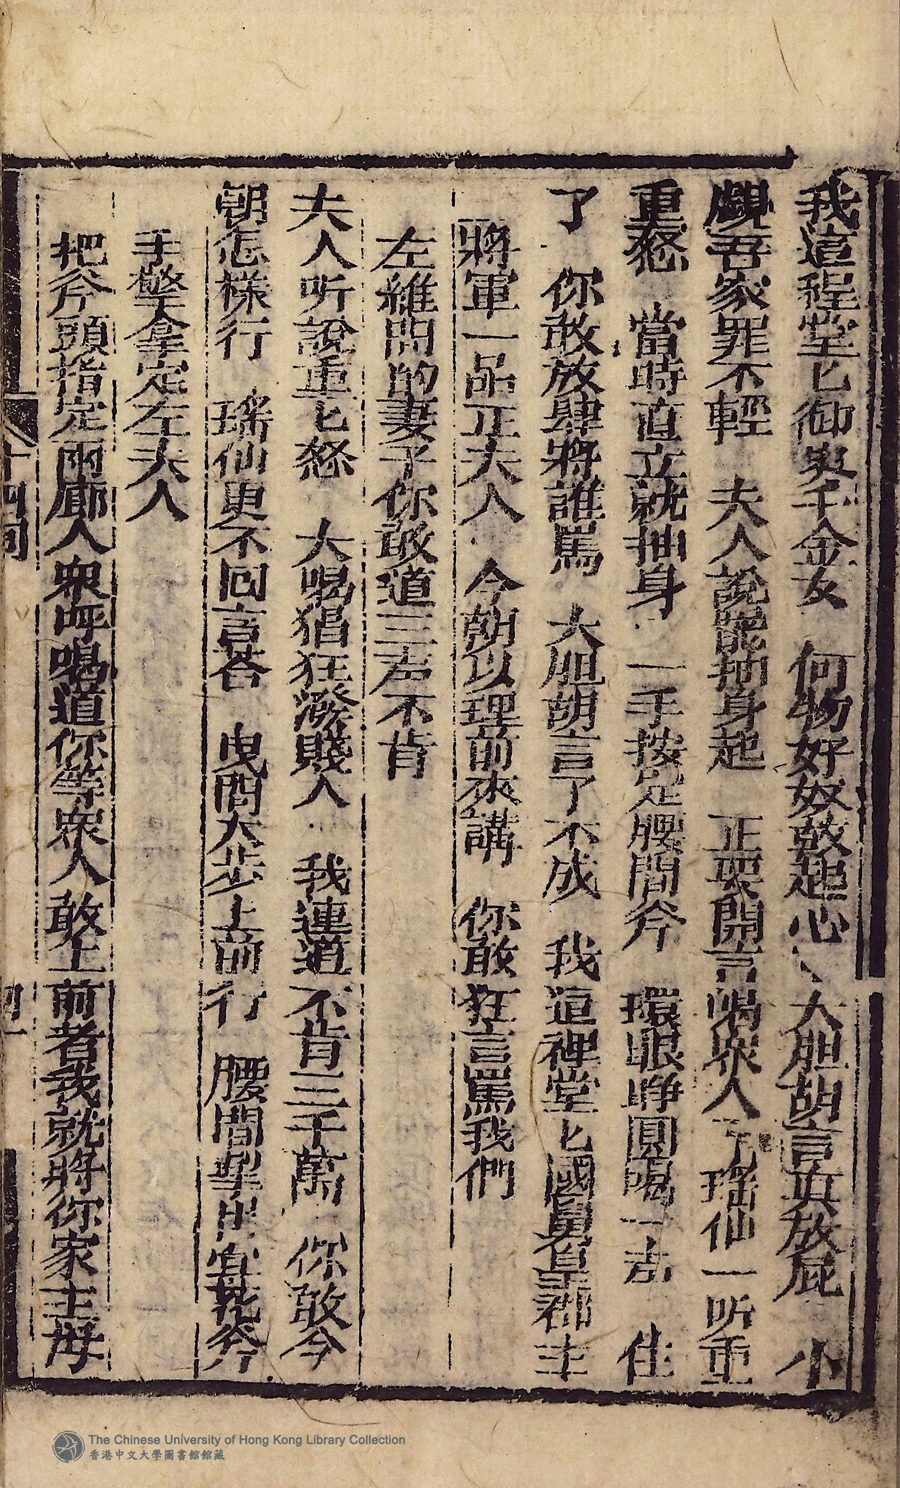 我這程堂匕御史千金女　何物好奴敢起心　大胆胡言真放屁　小
覷吾家罪不輕　夫人說罷抽身起　正要開言喝眾人　瑤仙一听重
重怒　當時直立就抽身　一手按定腰間斧　環眼睜圓喝一声　住
了　你敢放肆將誰罵　大胆胡言了不成　我這裡堂匕國舅皇郡主
將軍一品正夫人　今朝以理前來講　你敢狂言罵我們
左維明的妻子你敢道三声不肯
夫人听說重匕怒　大喝猖狂潑賤人　我連道不肯三千萬　你敢今
朝怎樣行　瑤仙更不回言荅　曳開大步上前行　腰間掣出宣花斧
手擎拿定左夫人
把斧頭指定兩廊人眾呼喝道你等眾人敢上前者我就將你家主母
十四回
四一
The Chinese University of Hong Kong Library Collection
香港中文大學圖書館館藏